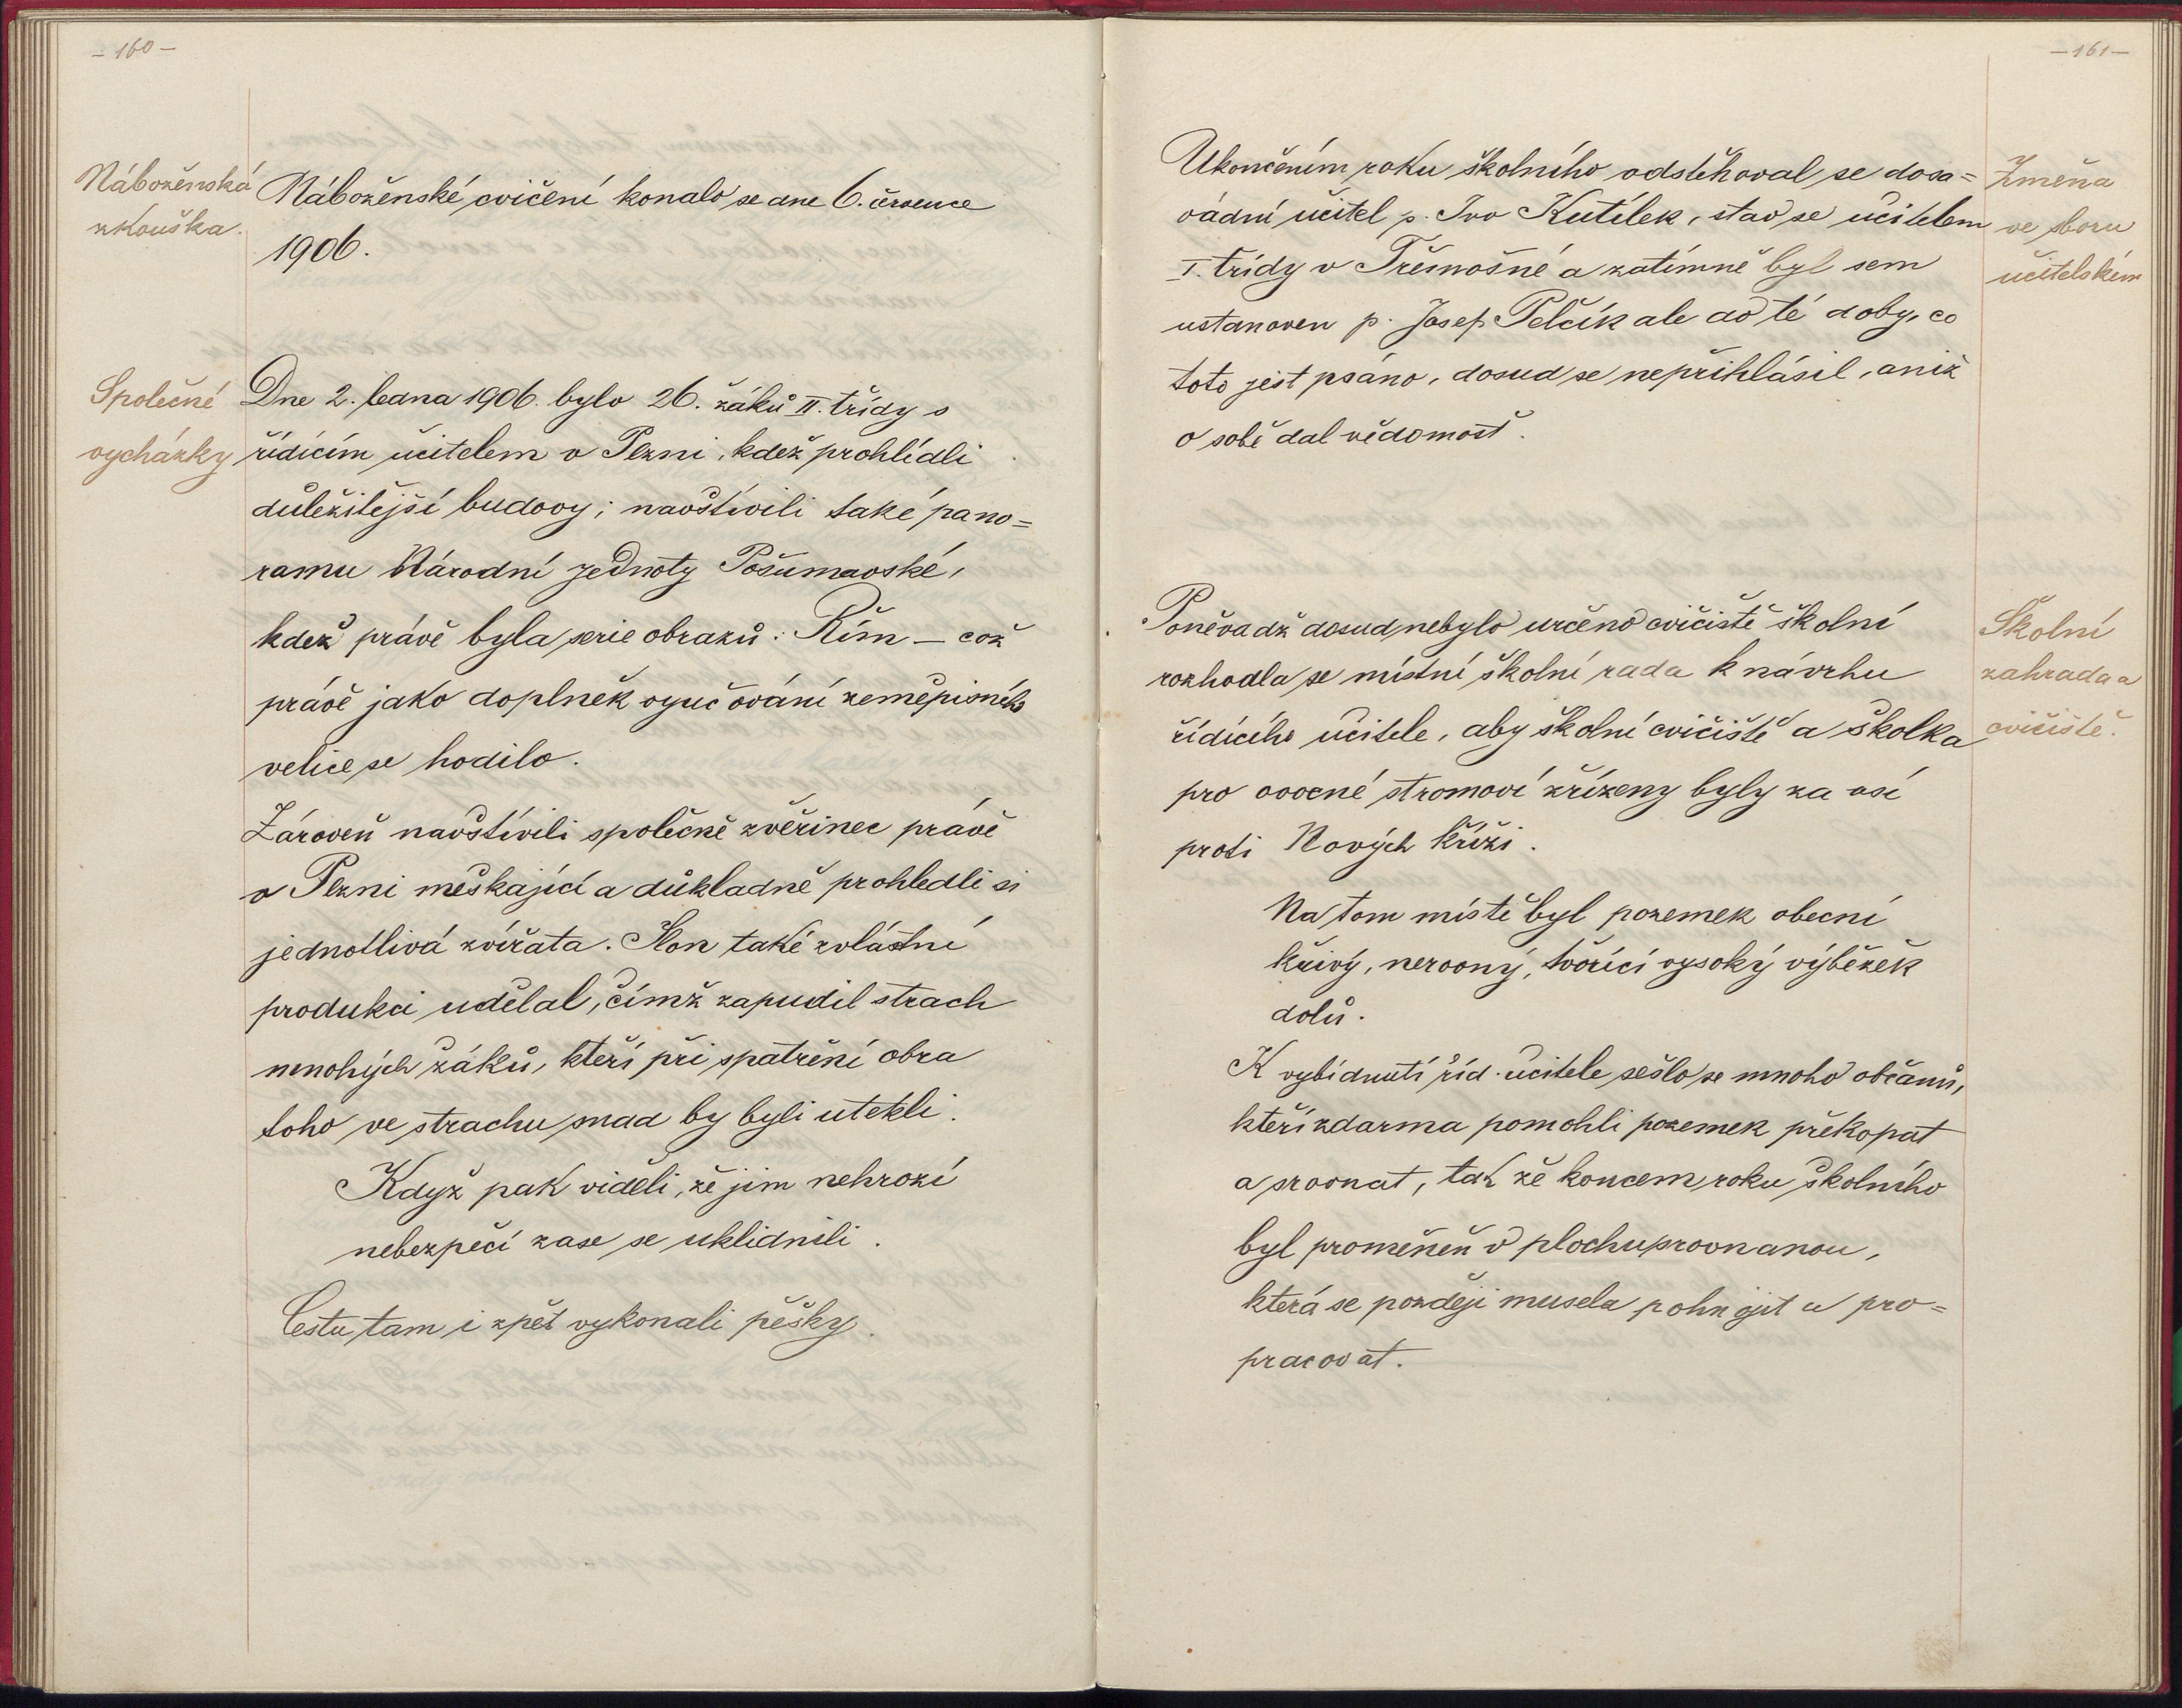 - 160 -
Náboženská
zkouška.
Náboženské cvičení konalo se dne 6. července
1906.
Společné
vycházky
Dne 2. ledna 1906. bylo 26. žáků II. třídy s
řídícím učitelem v Plzni, kdež prohlídli
důležitější budovy; navštívili také pano=
ramu Národní jednoty Pošumavské,
kdež právě byla serie obrazů: Řím – což
právě jako doplněk vyučování zeměpisného
velice se hodilo.
Zároveň navštívili společně zvěřinec právě
v Plzni meškající a důkladně prohledli si
jednotlivá zvířata. Slon také zvláštní
produkci udělal, čímž zapudil strach
mnohých žáků, kteří při spatření obra
toho ve strachu snad by byli utekli.
Když pak viděli, že jim nehrozí
nebezpečí zase se uklidnili.
Cestu tam i zpět vykonali pěšky.
- 161 -
Ukončením roku školního odstěhoval se dosa=
vádní učitel p. Ivo Kutílek, stav se učitelem
I. třídy v Třemošné a zatímně byl sem
ustanoven p. Josef Pelčík ale do té doby, co
toto jest psáno, dosud se nepřihlásil, aniž
o sobě dal vědomost.
Změna
ve sboru
učitelském
Poněvadž dosud nebylo určeno cvičiště školní
rozhodla se místní školní rada k návrhu
řídícího učitele, aby školní cvičiště a školka
pro ovocné stromoví zřízeny byly za vsí
proti Nových kříži.
Školní
zahrada a
cvičiště.
Na tom místě byl pozemek obecní
křivý, nerovný, tvořící vysoký výběžek
dolů.
K vybídnutí říd. učitele sešlo se mnoho občanů,
kteří zdarma pomohli pozemek překopat
a srovnat, tak že koncem roku školního
byl proměněn v plochu srovnanou,
která se později musela pohnojit a pro=
pracovat.